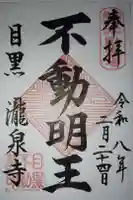 奉拝
令和八年
二月二十四日
不動明王
目黒
瀧泉寺